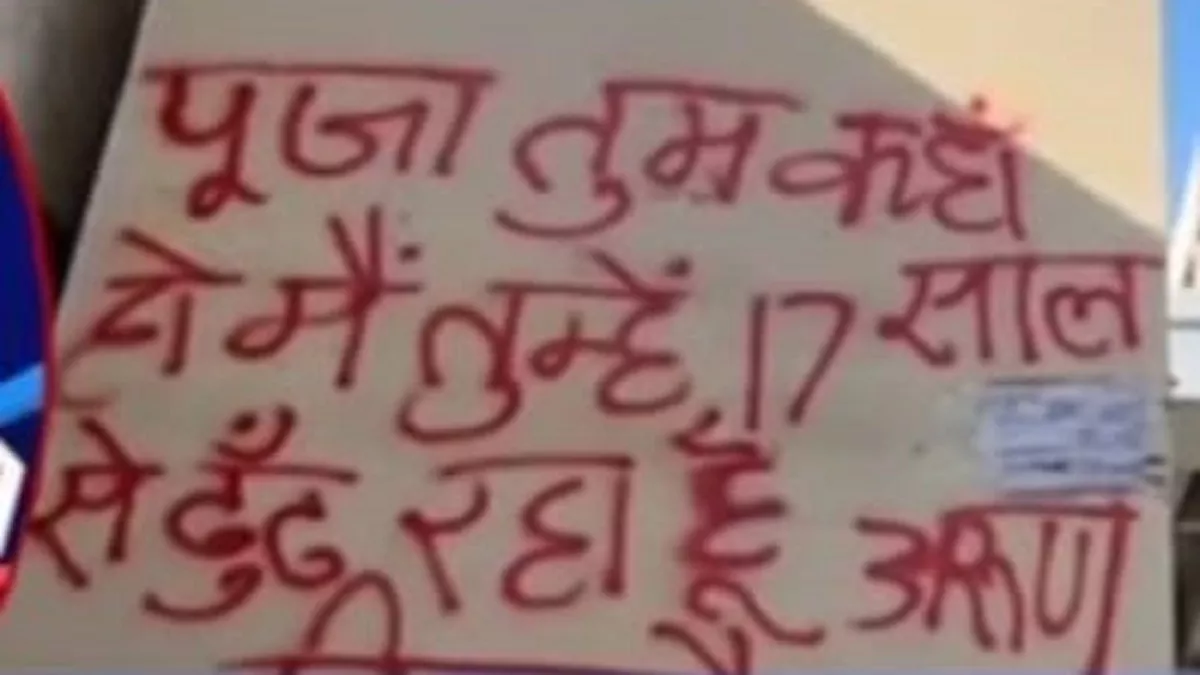 पूजा तुम कहाँ
हो मैं तुम्हें 17 साल
से ढुँढ रहा हूँ अरूण